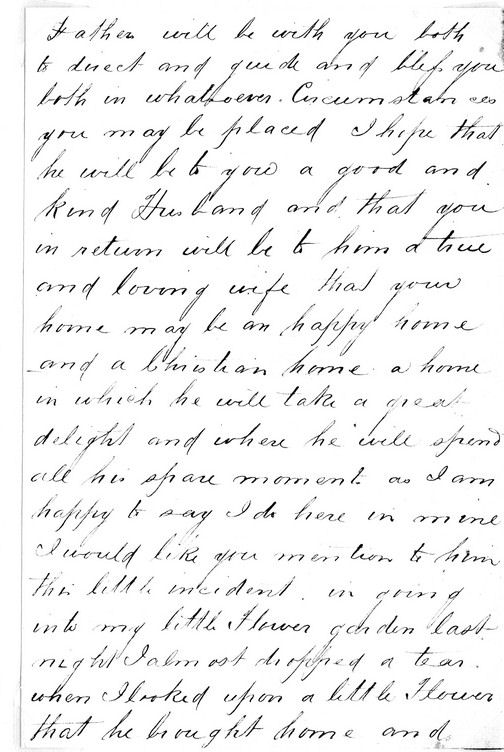 Father will be with you both
to direct and guide and bless you
both in whatsoever Circumstances
you may be placed I hope that
he will be to you a good and
kind Husband and that you
in return will be to him a true
and loving wife that your
home may be an happy home
and a Christian home a home
in which he will take a great
delight and where he will spend
all his spare moments as I am
happy to say I do here in mine
I would like you mention to him
this little incident. in going
into my little Flower garden last
night I almost dropped a tear.
when I looked upon a little Flower
that he brought home and